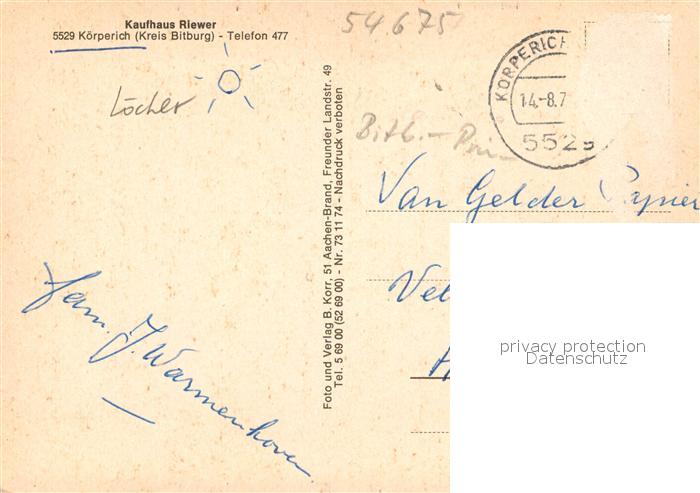 Kaufhaus Riewer
5529 Körperich (Kreis Bitburg) - Telefon 477
54675
Löcher
KÖRPERICH
14.-8.7
5529
Bitb. -
Van Gelder Papier
Vel
Fam. J. Warmenhoven
Foto und Verlag B. Korr, 51 Aachen-Brand, Freunder Landstr. 49
Tel. 5 69 00 (52 69 00) - Nr. 73 11 74 - Nachdruck verboten
privacy protection
Datenschutz